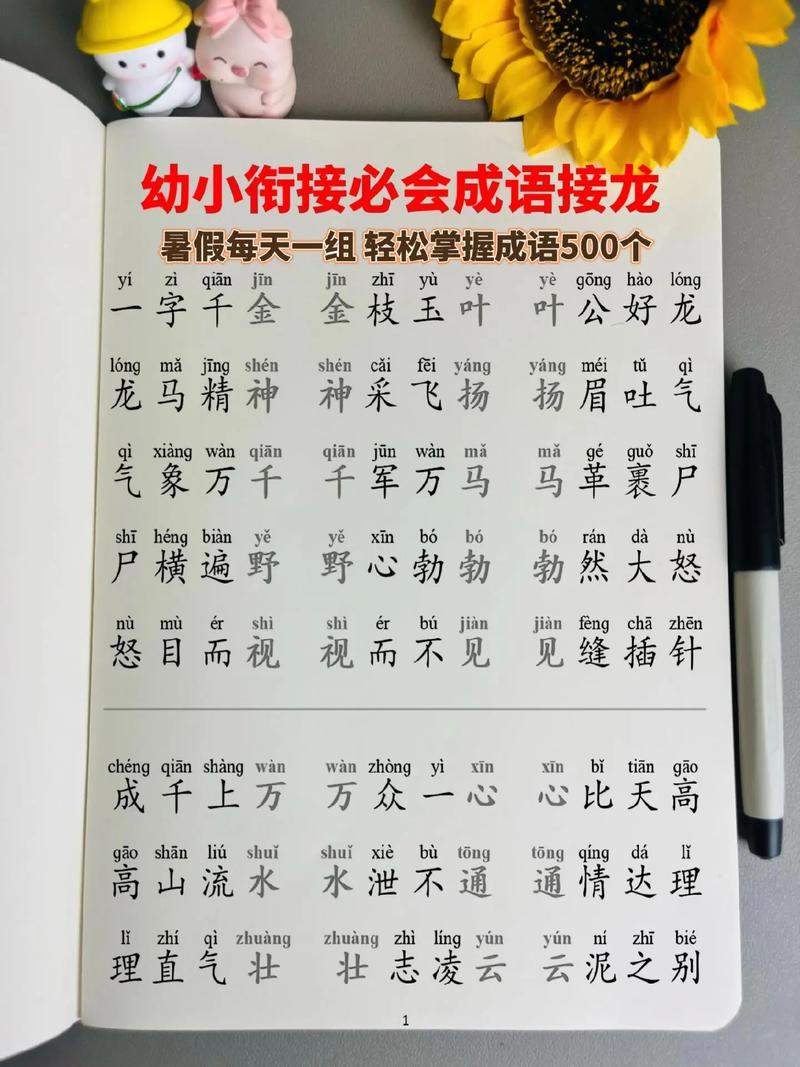 幼小衔接必会成语接龙
暑假每天一组 轻松掌握成语500个
yí zì qiān jīn jīn zhī yù yè yè gōng hào lóng
一字千金 金枝玉叶 叶公好龙
lóng mǎ jīng shén shén cǎi fēi yáng yáng méi tǔ qì
龙马精神 神采飞扬 扬眉吐气
qì xiàng wàn qiān qiān jūn wàn mǎ mǎ gé guǒ shī
气象万千 千军万马 马革裹尸
shī héng biàn yě yě xīn bó bó bó rán dà nù
尸横遍野 野心勃勃 勃然大怒
nù mù ér shì shì ér bú jiàn jiàn fèng chā zhēn
怒目而视 视而不见 见缝插针
chéng qiān shàng wàn wàn zhòng yì xīn xīn bǐ tiān gāo
成千上万 万众一心 心比天高
gāo shān liú shuǐ shuǐ xiè bù tōng tōng qíng dá lǐ
高山流水 水泄不通 通情达理
lǐ zhí qì zhuàng zhuàng zhì líng yún yún ní zhī bié
理直气壮 壮志凌云 云泥之别
1